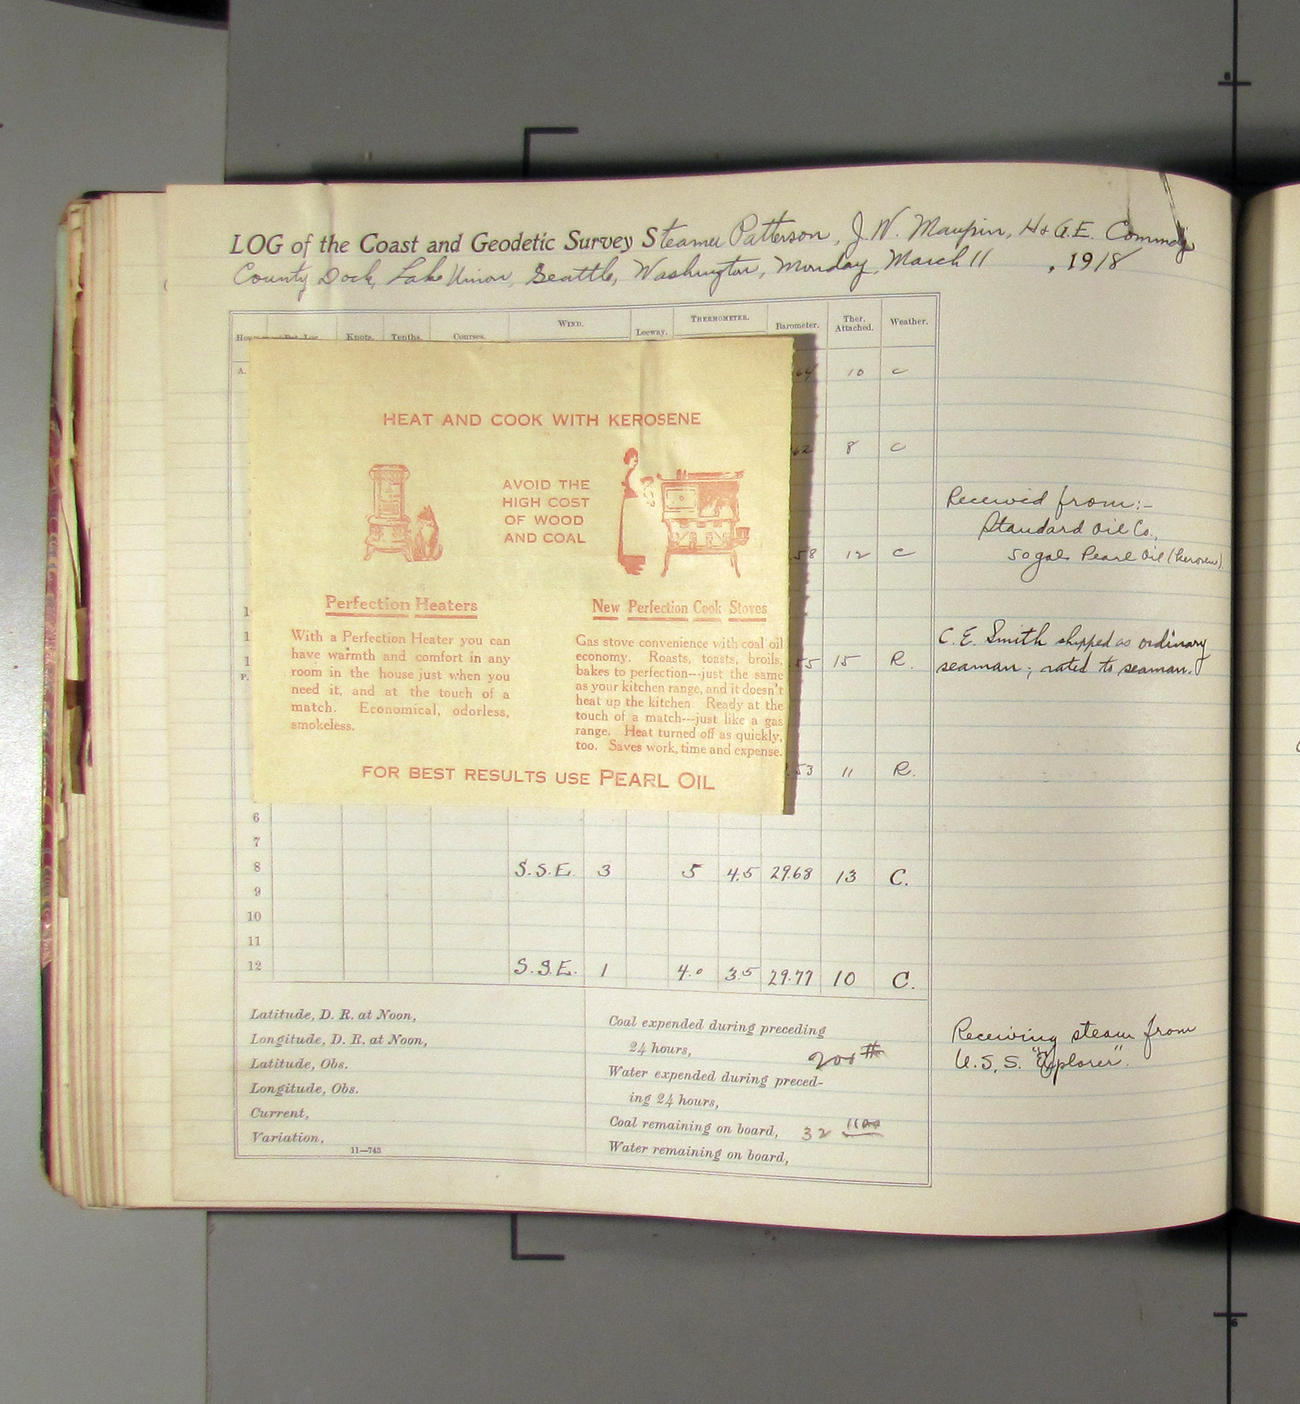 LOG of the Coast and Geodetic Survey Steamer Patterson, J. W. Maupin, H. & G. E. Commdg
County Dock, Lake Union, Seattle, Washington, Monday, March 11, 1918
WIND. THERMOMETER.
Knots. Tenths. Courses. Leeway. Barometer. Ther. Attached. Weather.
A.
64 10 c
62 8 c
58 12 c
55 15 R.
P.
.53 11 R.
HEAT AND COOK WITH KEROSENE
AVOID THE
HIGH COST
OF WOOD
AND COAL
Perfection Heaters
With a Perfection Heater you can
have warmth and comfort in any
room in the house just when you
need it, and at the touch of a
match. Economical, odorless,
smokeless.
New Perfection Cook Stoves
Gas stove convenience with coal oil
economy. Roasts, toasts, broils,
bakes to perfection---just the same
as your kitchen range, and it doesn't
heat up the kitchen Ready at the
touch of a match---just like a gas
range. Heat turned off as quickly,
too. Saves work, time and expense.
FOR BEST RESULTS USE PEARL OIL
6
7
8 S.S.E. 3 5 4.5 29.68 13 C.
9
10
11
12 S.S.E. 1 4.0 3.5 29.77 10 C.
Latitude, D. R. at Noon,
Longitude, D. R. at Noon,
Latitude, Obs.
Longitude, Obs.
Current,
Variation,
11—743
Coal expended during preceding
24 hours, 200 #
Water expended during preced-
ing 24 hours,
Coal remaining on board, 32 1100
Water remaining on board,
Received from:-
Standard Oil Co.,
50 gals Pearl Oil (kerosene)
C. E. Smith shipped as ordinary
seaman; rated to seaman.
Receiving steam from
U.S.S. "Explorer".